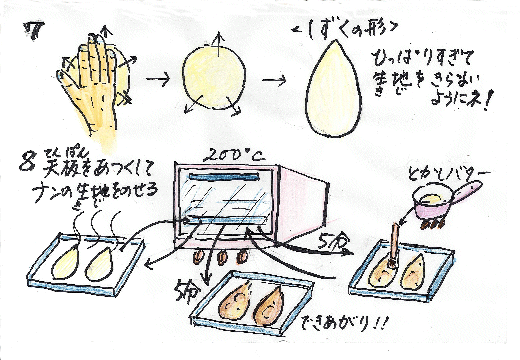 7
<しずくの形>
ひっぱりすぎて
生地をきらない
きじ
ようにネ!
8 天板をあつくして
てんぱん
ナンの生地をのせる
きじ
200°C
とかしバター
5分
5分
できあがり!!